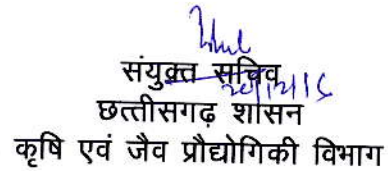 संयुक्त सचिव
छत्तीसगढ़ शासन
कृषि एवं जैव प्रौद्योगिकी विभाग